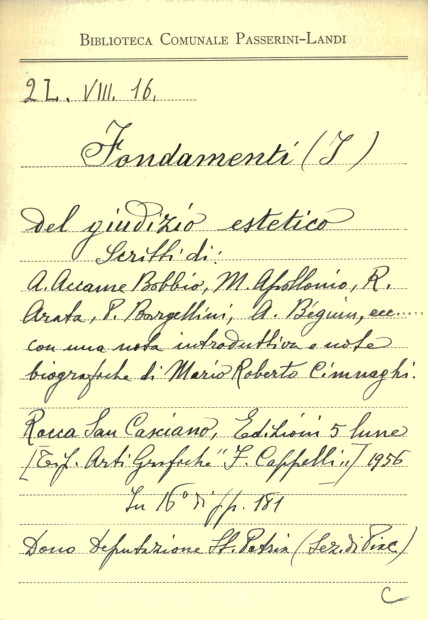 BIBLIOTECA COMUNALE PASSERINI-LANDI
2L. VIII. 16.
Fondamenti (I)
del giudizio estetico
Scritti di:
A. Accame Bobbio, M. Apollonio, R.
Arata, P. Bargellini, A. Béguin, ecc.....
con una nota introduttiva e note
biografiche di Mario Roberto Cimnaghi.
Rocca San Casciano, Edizioni 5 lune
[Tip. Arti Grafiche "F. Cappelli"] 1956
In 16° di pp. 181
Dono Deputazione St. Patria (Sez. di Piac.)
C